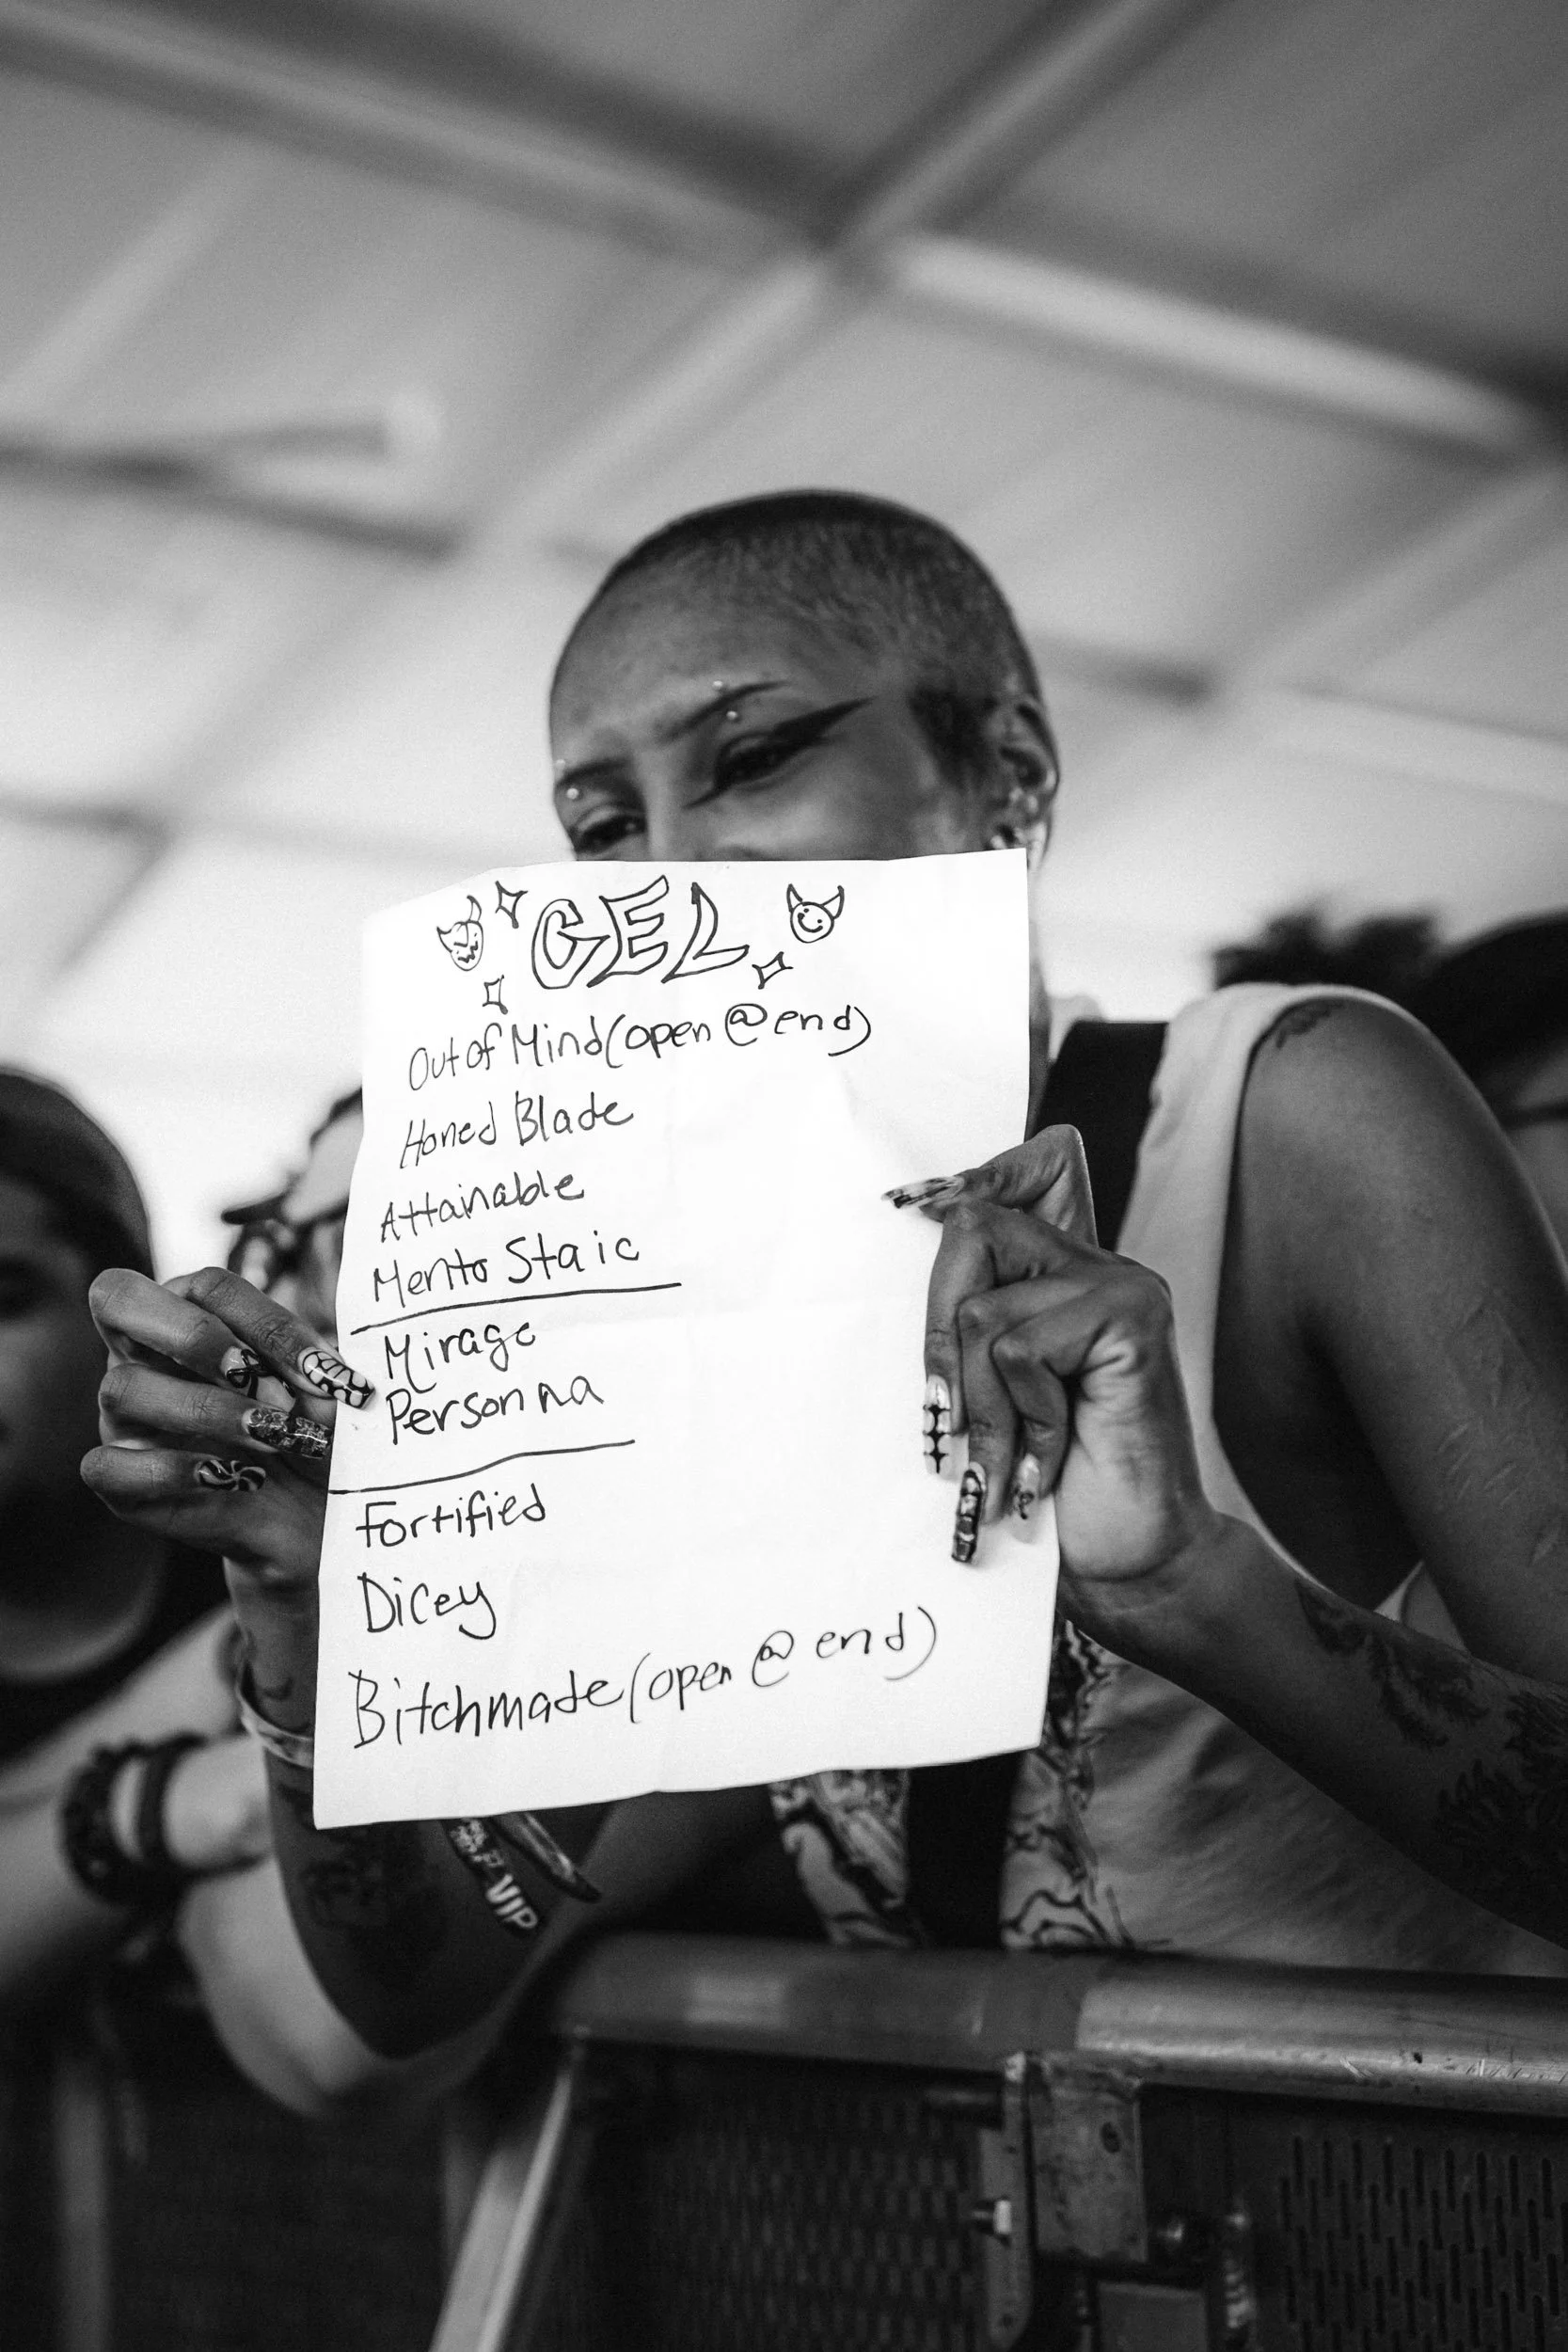 GEL
Out of Mind (open @ end)
Honed Blade
Attainable
Mento Staic
Mirage
Personna
Fortified
Dicey
Bitchmade (open @ end)
VIP